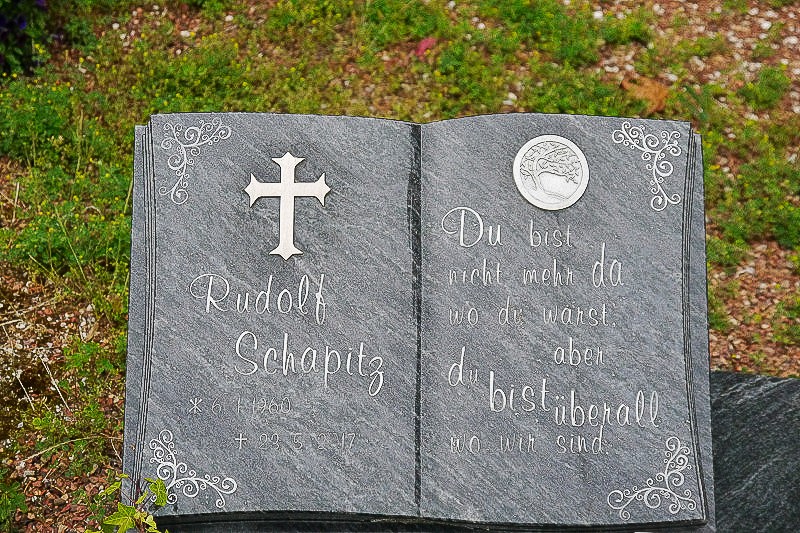 Rudolf
Schapitz
* 6.1.1960
+ 22.5.2017
Du bist
nicht mehr da
wo du warst,
aber
du bist überall
wo wir sind.